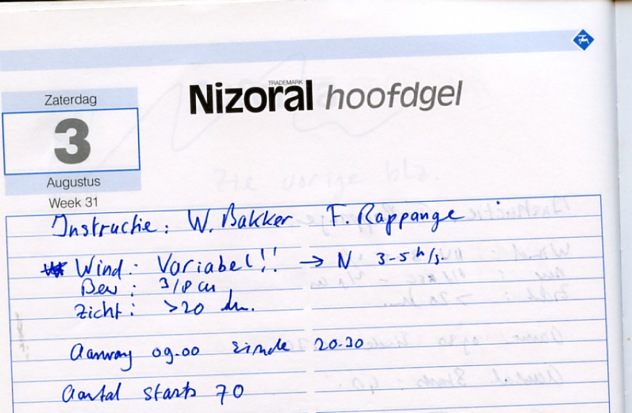 TRADEMARK
Nizoral hoofdgel
Zaterdag
3
Augustus
Week 31
Instructie: W. Bakker F. Rappange
Wind: Variabel!! → N 3-5 h/s.
Bew: 3/8 cu
Zicht: >20
Aanvang 09.00 Einde 20.30
Aantal starts 70